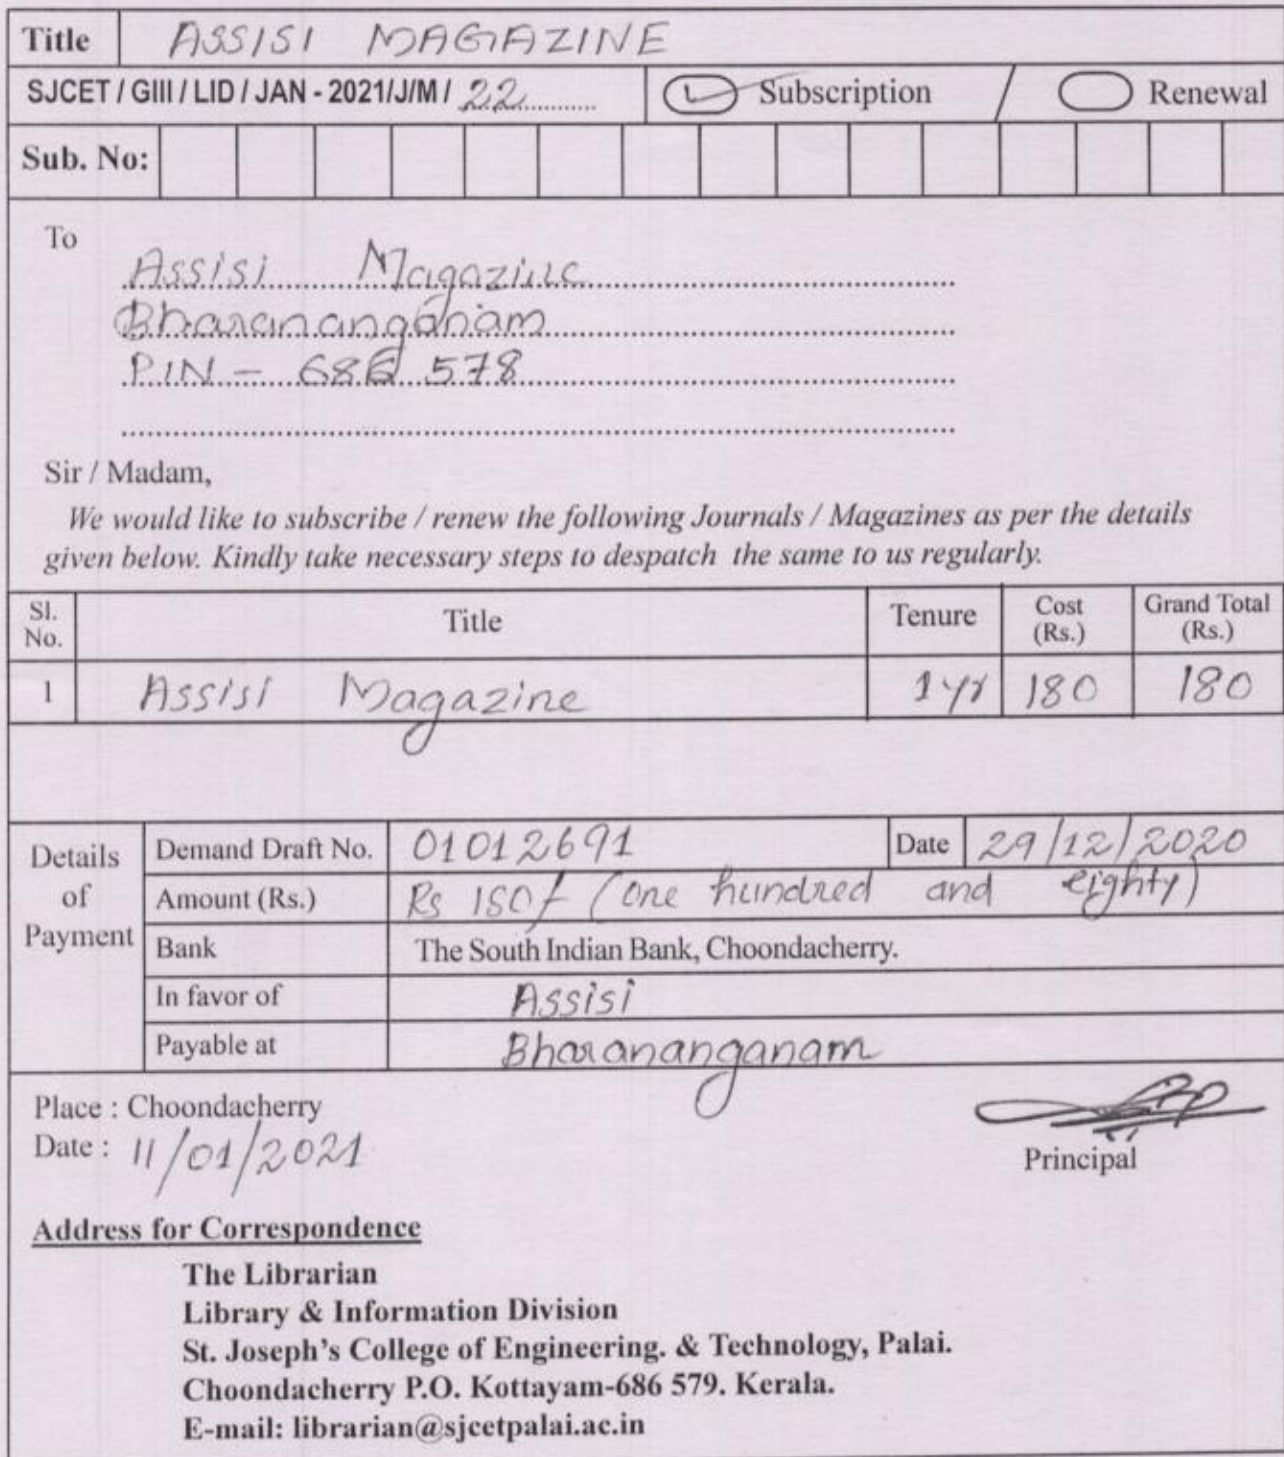 Title ASSISI MAGAZINE
SJCET / GIII / LID / JAN - 2021/J/M / 22 Subscription / Renewal
Sub. No:
To
Assisi Magazine
Bharananganam
PIN - 686 578
Sir / Madam,
We would like to subscribe / renew the following Journals / Magazines as per the details
given below. Kindly take necessary steps to despatch the same to us regularly.
Sl. No. Title Tenure Cost (Rs.) Grand Total (Rs.)
1 Assisi Magazine 1 yr 180 180
Details of Payment
Demand Draft No. 01012691 Date 29/12/2020
Amount (Rs.) Rs 180/- (One hundred and eighty)
Bank The South Indian Bank, Choondacherry.
In favor of Assisi
Payable at Bharananganam
Place : Choondacherry
Date : 11/01/2021
Principal
Address for Correspondence
The Librarian
Library & Information Division
St. Joseph's College of Engineering. & Technology, Palai.
Choondacherry P.O. Kottayam-686 579. Kerala.
E-mail: librarian@sjcetpalai.ac.in